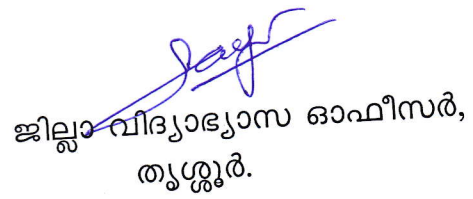 ജില്ലാ വിദ്യാഭ്യാസ ഓഫീസർ,
തൃശ്ശൂർ.